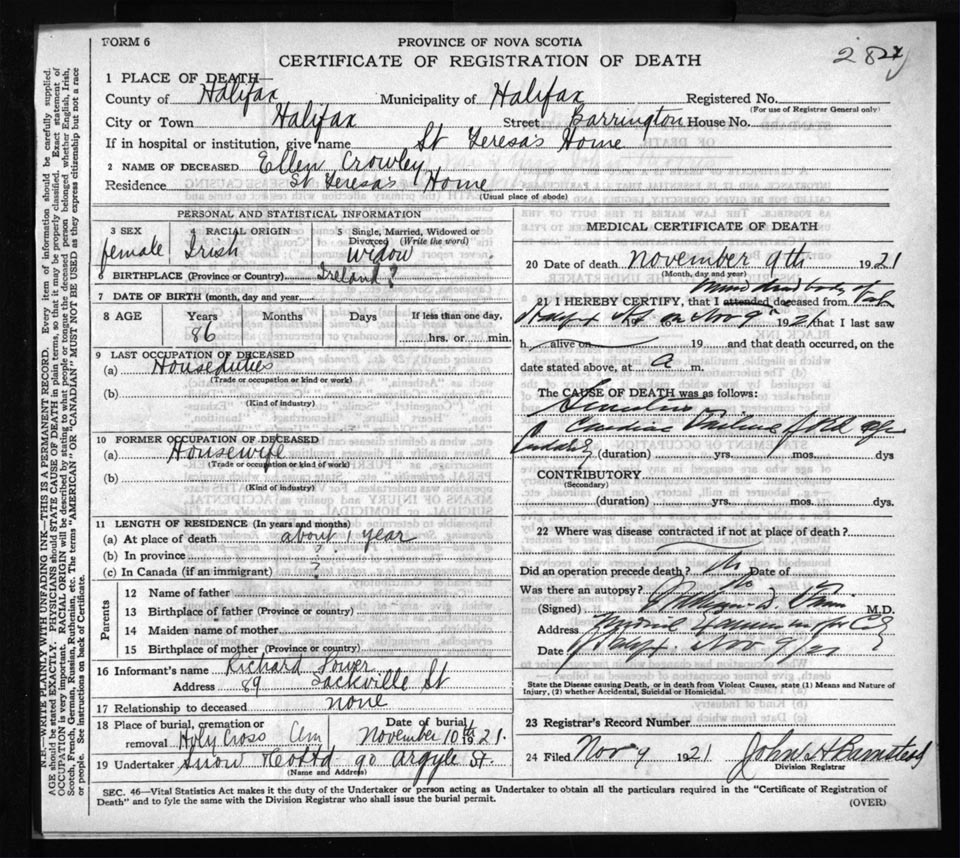 FORM 6
PROVINCE OF NOVA SCOTIA
CERTIFICATE OF REGISTRATION OF DEATH
1 PLACE OF DEATH—
County of Halifax Municipality of Halifax Registered No.
(For use of Registrar General only)
City or Town Halifax Street Barrington House No.
If in hospital or institution, give name St Teresa's Home
2 NAME OF DECEASED Ellen Crowley
Residence St Teresa's Home
(Usual place of abode)
PERSONAL AND STATISTICAL INFORMATION
3 SEX female
4 RACIAL ORIGIN Irish
5 Single, Married, Widowed or Divorced (Write the word) Widow
6 BIRTHPLACE (Province or Country) Ireland?
7 DATE OF BIRTH (month, day and year
8 AGE Years Months Days If less than one day,
86 hrs. or min.
9 LAST OCCUPATION OF DECEASED
(a) Houseduties
(Trade or occupation or kind or work)
(b)
(Kind of industry)
10 FORMER OCCUPATION OF DECEASED
(a) Housewife
(Trade or occupation or kind or work)
(b)
(Kind of industry)
11 LENGTH OF RESIDENCE (In years and months)
(a) At place of death about 1 year
(b) In province ?
(c) In Canada (if an immigrant) ?
Parents
12 Name of father
13 Birthplace of father (Province or country)
14 Maiden name of mother
15 Birthplace of mother (Province or country)
16 Informant's name Richard Power
Address 89 Sackville St
17 Relationship to deceased none
18 Place of burial, cremation or removal Holy Cross Cem
Date of burial November 10th 1921.
19 Undertaker Snow & Co Ltd 90 Argyle St.
(Name and Address)
MEDICAL CERTIFICATE OF DEATH
20 Date of death November 9th 1921
(Month, day and year)
21 I HEREBY CERTIFY, that I attended deceased from
on Nov 9 1921 that I last saw
h alive on 19 and that death occurred, on the
date stated above, at a m.
The CAUSE OF DEATH was as follows:
Cardiac Failure of Old age
(duration) yrs. mos. dys
CONTRIBUTORY
(Secondary)
(duration) yrs. mos. dys.
22 Where was disease contracted if not at place of death?
Did an operation precede death? No Date of
Was there an autopsy? No
(Signed) M.D.
Address
Date Nov 9/21
State the Disease causing Death, or in death from Violent Causes, state (1) Means and Nature of Injury, (2) whether Accidental, Suicidal or Homicidal.
23 Registrar's Record Number
24 Filed Nov 9 1921 John A Barnstead
Division Registrar
SEC. 46—Vital Statistics Act makes it the duty of the Undertaker or person acting as Undertaker to obtain all the particulars required in the "Certificate of Registration of
Death" and to fyle the same with the Division Registrar who shall issue the burial permit.
(OVER)
N.B.—WRITE PLAINLY WITH UNFADING INK—THIS IS A PERMANENT RECORD. Every item of information should be carefully supplied.
AGE should be stated EXACTLY. PHYSICIANS should STATE CAUSE OF DEATH in plain terms, so that it may be properly classified. Exact statement of
OCCUPATION is very important. RACIAL ORIGIN will be described by stating to what people or tongue the deceased person belonged whether English, Irish,
Scotch, French, German, Russian, Ruthenian, etc. The terms "AMERICAN" OR "CANADIAN" MUST NOT BE USED as they express citizenship but not a race
or people. See instructions on back of Certificate.